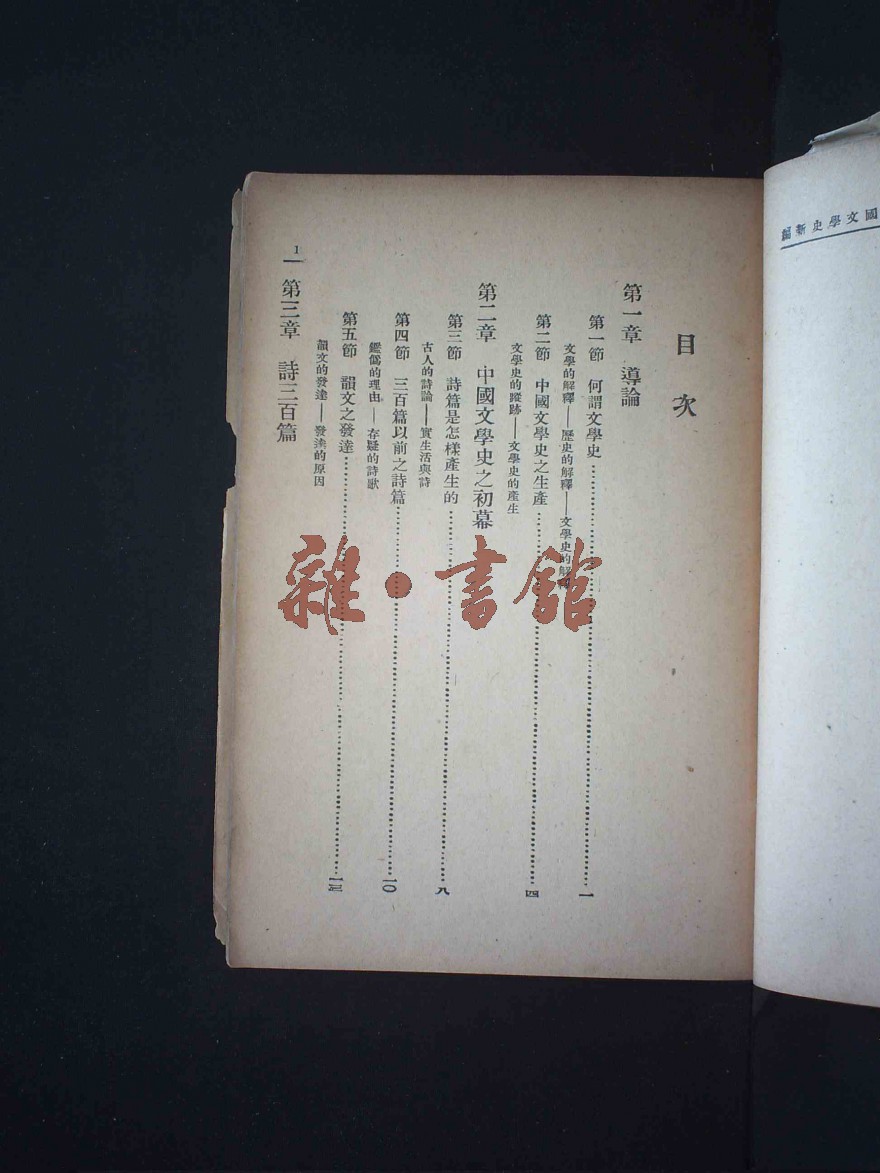 國文學史新編
目次
第一章 導論
第一節 何謂文學史……一
文學的解釋——歷史的解釋——文學史的解釋
第二節 中國文學史之生產……四
文學史的蹤跡——文學史的產生
第二章 中國文學史之初幕
第三節 詩篇是怎樣產生的……八
古人的詩論——實生活與詩
第四節 三百篇以前之詩篇……一〇
鑑僞的理由——存疑的詩歌
第五節 韻文之發達……一三
韻文的發達——發達的原因
第三章 詩三百篇
1
雜·書館